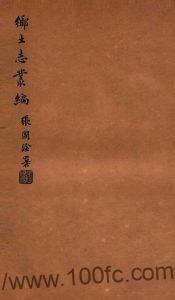 鄉土志叢編
張國淦署
www.100fc.com